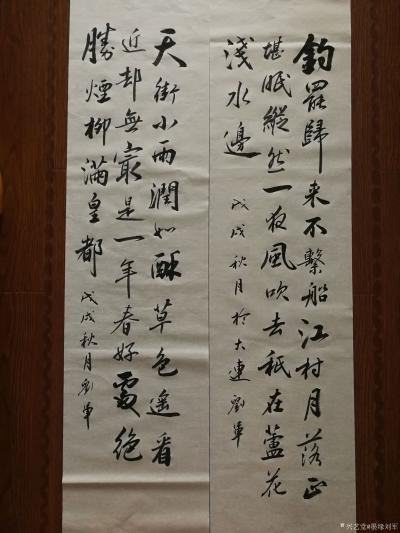 釣罷歸来不繫船江村月落正
堪眠縱然一夜風吹去祇在蘆花
淺水邊
戊戌秋月於大連劉軍
天街小雨潤如酥草色遙看
近却無最是一年春好處絕
勝煙柳满皇都
戊戌秋月劉軍
兴艺堂@墨缘刘军